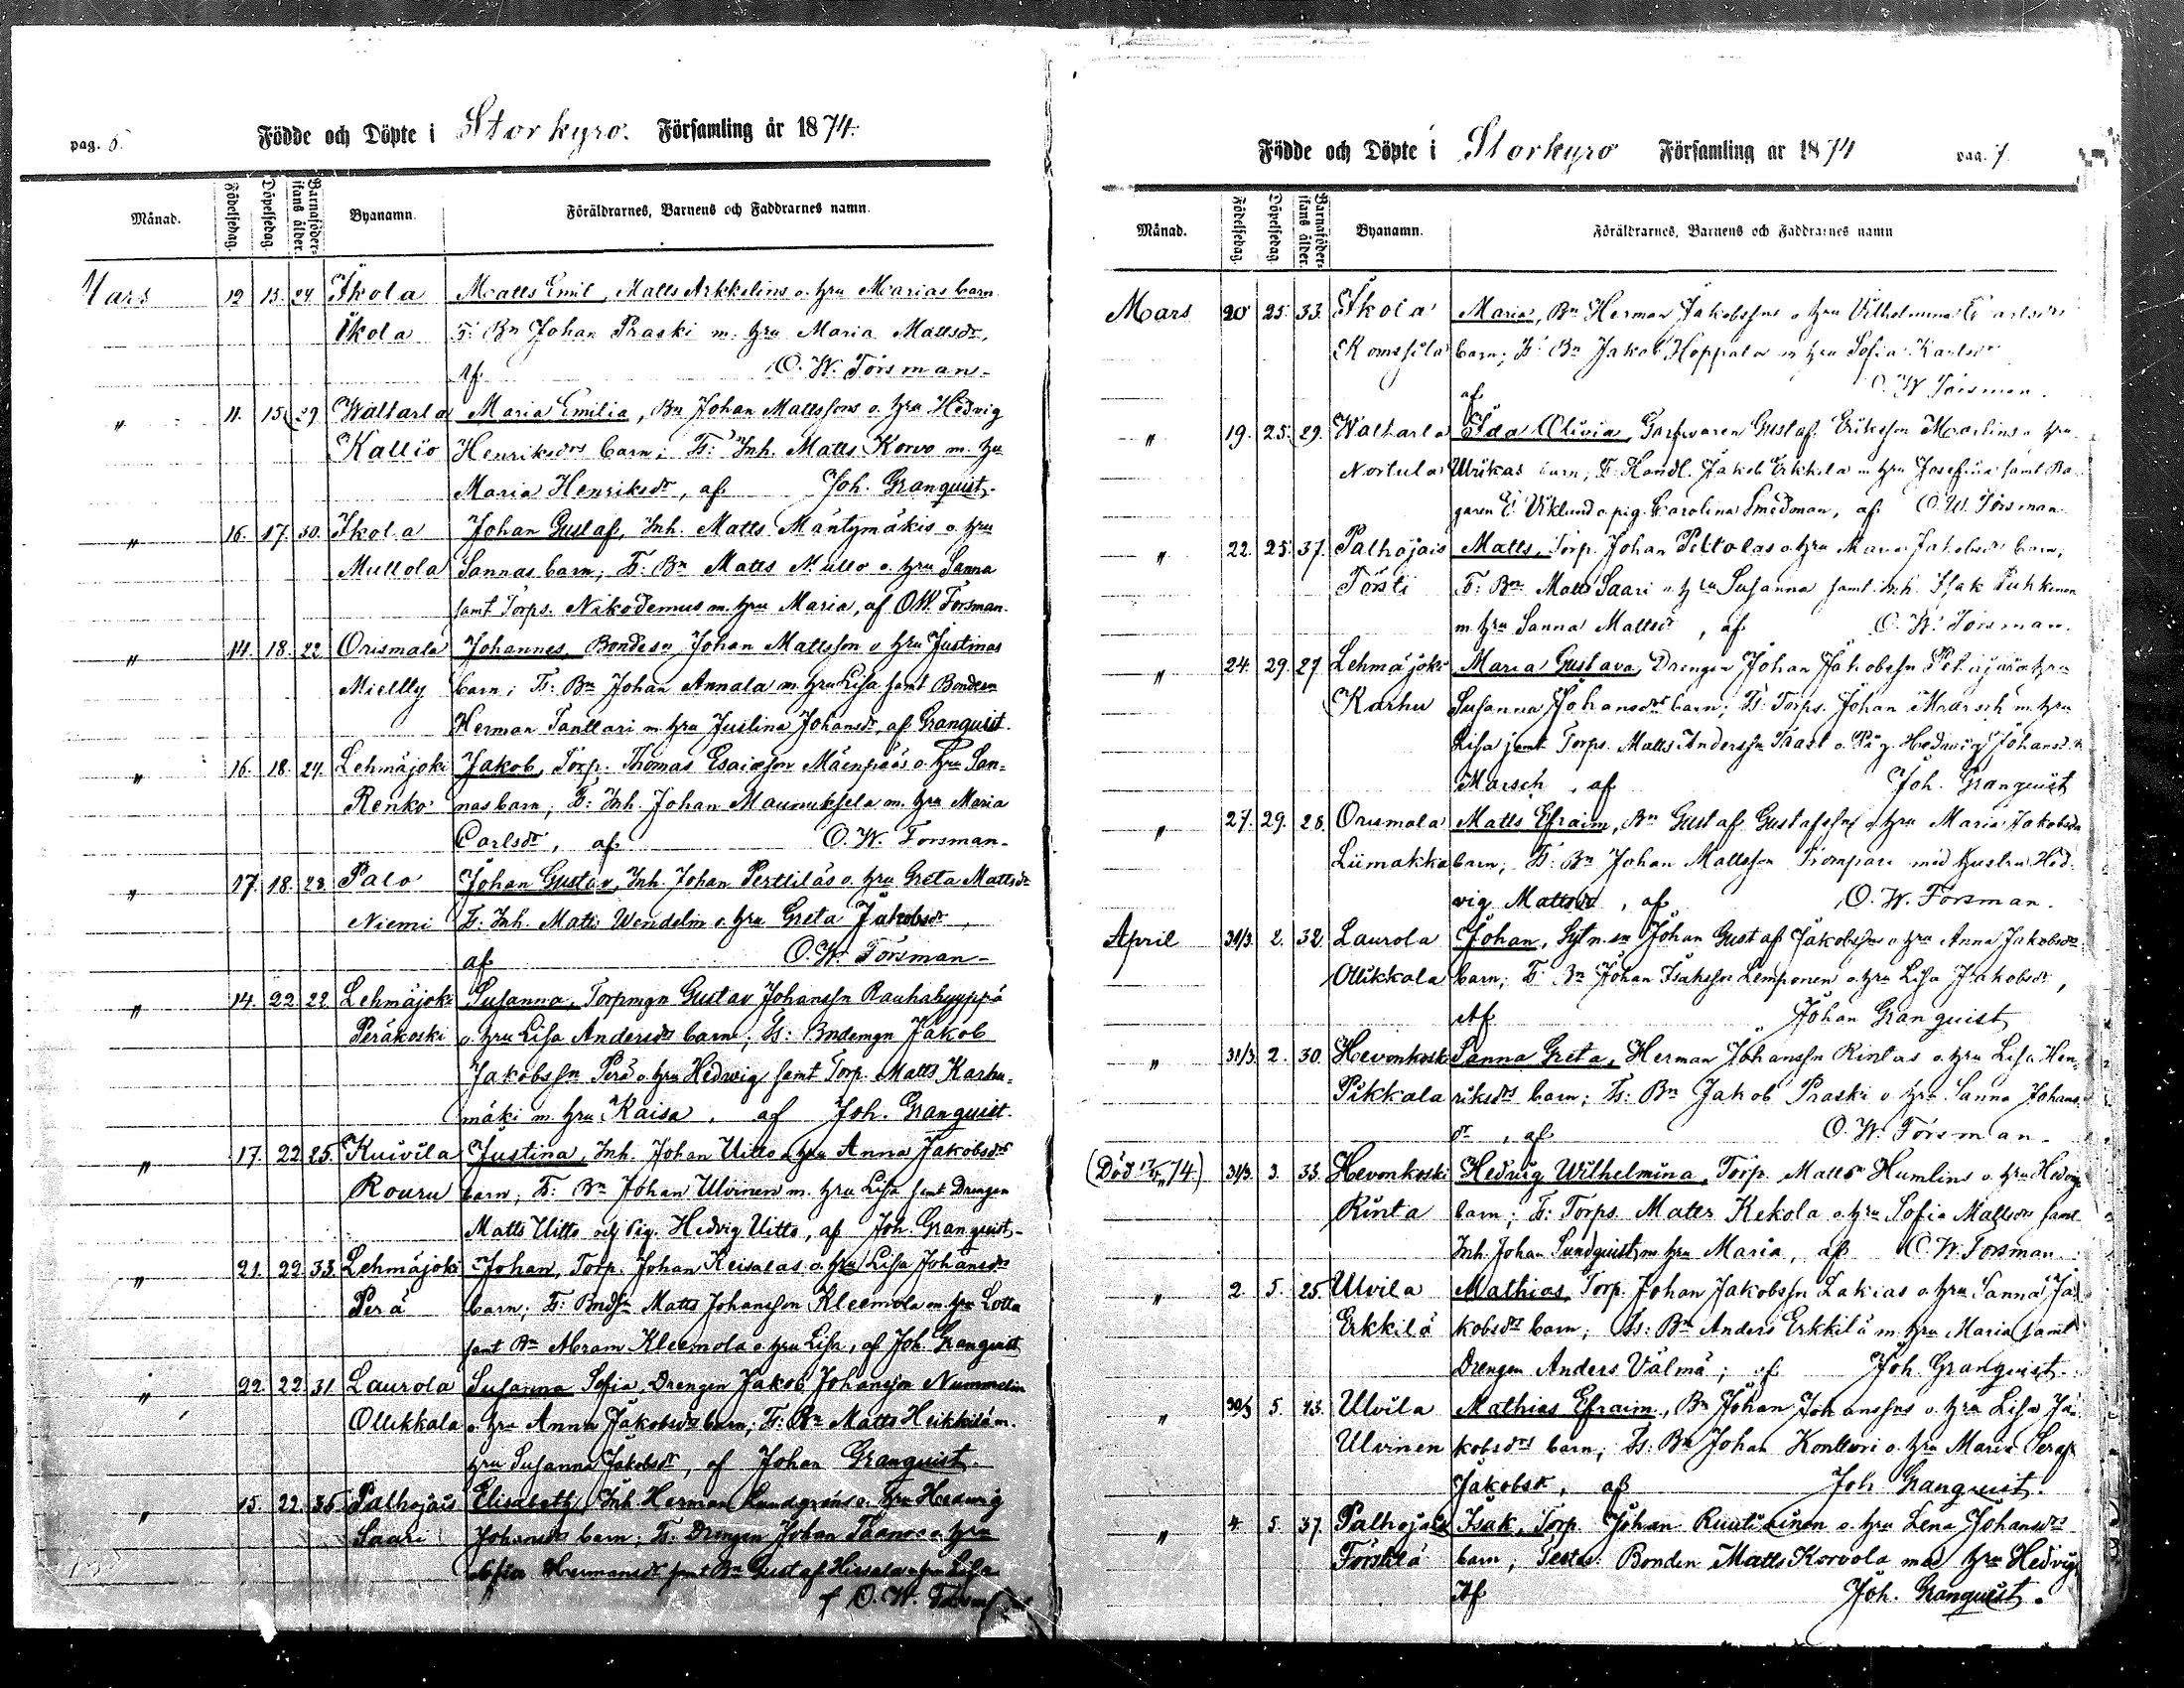 pag. 6.
Födde och Döpte i Storkyro. Församling år 1874.
Månad.
Födelsedag.
Döpelsedag.
Barnaföder-
skans ålder.
Byanamn.
Föräldrarnes, Barnens och Faddrarnes namn.
Mars 12 15. 24 Ikola Matts Emil, Matts Arkkelins o. hru Marias barn
Ikola F: Bn Johan Praski m. hru Maria Mattsdr,
Af O. W. Forsman.
" 11. 15. 29 Waltarla Maria Emilia, Bn Johan Mattssons o. hru Hedvig
Kallio Henriksdrs barn; F: Inh. Matts Korvo m. hu
Maria Henriksdr, af Joh. Granquist.
" 16. 17. 30. Ikola Johan Gustaf, Inh. Matts Mäntymäkis o. hru
Mullola Sannas barn; F: Bn Matts Mullo o. hru Sanna
samt Torps. Nikodemus m. hru Maria, af O.W. Forsman.
" 14. 18. 22 Orismala Johannes, Bondesn Johan Mattsson o hru Justinas
Mielty barn; F: Bn Johan Annala m. hru Lisa samt Bondesn
Herman Panttari m hru Justina Johansdr, af Granquist.
" 16. 18. 24. Lehmäjoki Jakob, Torp. Thomas Esaiasson Mäenpääs o. hru San-
Renko nas barn; F: Inh. Johan Maunuksela m. hru Maria
Carlsdr, af O. W. Forsman.
" 17. 18. 28 Palo Johan Gustav, Inh. Johan Perttiläs o. hru Greta Mattsdr
Niemi F: Inh. Matts Wendelin o. hru Greta Jakobsdr,
af O. W. Forsman
" 14. 22. 22. Lehmäjoki Susanna, Torpmgn Gustav Johanssn Rauhahyyppä
Peräkoski o. hru Lisa Andersdrs barn; F: Bndemgn Jakob
Jakobssn Perä o. hru Hedwig samt Torp. Matts Karhu-
mäki m. hru Kaisa, af Joh. Granquist.
" 17. 22 25. Kuivila Justina, Inh. Johan Uitto o hru Anna Jakobsdrs
Rouru barn; F: Bn Johan Ulvinen m. hru Lisa samt Drengen
Matts Uitto och Pig. Hedvig Uitto, af Joh. Granquist.
" 21. 22. 33. Lehmäjoki Johan, Torp. Johan Keisalas o. hru Lisa Johansdrs
Perä barn; F: Bndsn Matts Johansson Kleemola m. hru Lotta
samt Bn Abram Kleemola o hru Lisa, af Joh. Granquist
" 22. 22. 31. Laurola Susanna Sofia, Drengen Jakob Johansson Nummelin
Ollikkala o. hru Anna Jakobsdrs barn; F: Bn Matts Heikkilä m.
hru Susanna Jakobsdr, af Johan Granquist.
" 15. 22. 36 Palhojais Elisabeth, Inh. Herman Lundgrens o. hru Hedwig
Saari Johansdrs barn; F: Drengen Johan o. hru
Sofia Hermansdr samt Bn Gustaf o hru Lisa
f O. W. Forsman
Födde och Döpte i Storkyro Församling år 1874 pag. 7.
Månad.
Födelsedag.
Döpelsedag.
Barnaföder-
skans ålder.
Byanamn.
Föräldrarnes, Barnens och Faddrarnes namn
Mars 20 25. 33. Ikola Maria, Bn Herman Jakobssns o hru Vilhelmina Carlsdrs
Komsila barn; F: Bn Jakob Hoppala m hru Sofia Karlsdr
af O. W Forsman.
" 19. 25. 29. Waltarla Ida Olivia, Garfvaren Gustaf Eriksson Marlins o hru
Nortula Ulrikas barn; F: Handl. Jakob Erkkila m hru Josefina samt Ba-
garen E. Viklund o pig. Carolina Smedman, af O. W. Forsman.
" 22. 25. 37. Palhojais Matts, Torp. Johan Peltolas o. hru Maria Jakobsdrs barn;
Torsti F: Bn Matts Saari o. hru Susanna samt inh. Isak Puhkonen
m. hru Sanna Mattsdr, af O. W. Forsman.
" 24. 29. 27 Lehmäjoki Maria Gustava, Drengen Johan Jakobssn o hru
Karhu Susanna Johansdrs barn; F: Torps. Johan Marsch m. hru
Lisa samt Torps. Matts Anderssn o. Pig. Hedwig Johansdr
Marsch, af Joh. Granquist
" 27. 29. 28. Orismala Matts Efraim, Bn Gustaf Gustafssns o hru Maria Jakobsdrs
Liimakka barn; F: Bn Johan Mattsson Trompari med hustru Hed-
vig Mattsdr, af O. W. Forsman.
April 31/3. 2. 32. Laurola Johan, Sytn. sn Johan Gustaf Jakobssns o hru Anna Jakobsdrs
Ollikkala barn; F: Bn Johan Isakssn Lemponen o hru Lisa Jakobsdr,
Af Johan Granquist
" 31/3. 2. 30. Hevonkoski Sanna Greta, Herman Johanssn Rintas o. hru Lisa Hen-
Pikkala riksdrs barn; F: Bn Jakob Praski o hru. Sanna Johans-
dr, af O. W. Forsman.
(Död 17/4 74) 31/3. 3. 33. Hevonkoski Hedvig Wilhelmina, Torp. Matts Humlins o. hru Hedvigs
Rinta barn; F: Torps. Matts Kekola o. hru Sofia Mattsdr samt
Inh. Johan Sundquist m hru Maria, af O. W. Forsman.
" 2. 5. 25. Ulvila Mathias, Torp. Johan Jakobssn Lakias o. hru Sanna Ja-
Erkkilä kobsdrs barn; F: Bn Anders Erkkilä m. hru Maria samt
Drengen Anders Välmä; af Joh. Granquist.
" 30/3 5. 43. Ulvila Mathias Efraim, Bn Johan Johanssns o. hru Lisa Ja-
Ulvinen kobsdrs barn; F: Bn Johan Konttori o. hru Maria Seraf.
Jakobsdr, af Joh Granquist.
" 4. 5. 37. Palhojais Isak, Torp. Johan o. hru Lena Johansdrs
Torstila barn; Testes: Bonden Matts Korvola med hru Hedvig
Af Joh. Granquist.